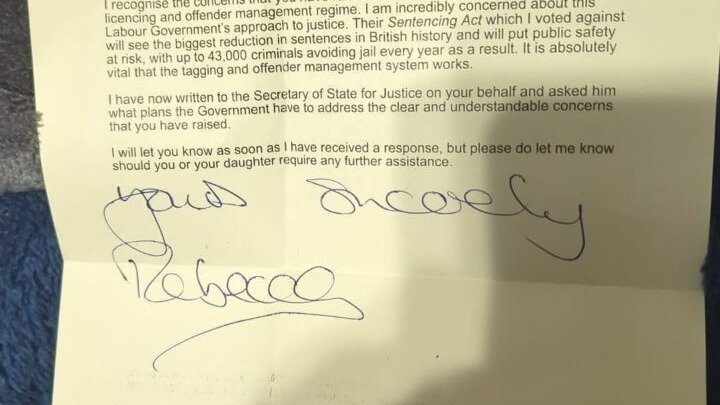 I recognise the concerns that you have
licencing and offender management regime. I am incredibly concerned about this
Labour Government's approach to justice. Their Sentencing Act which I voted against
will see the biggest reduction in sentences in British history and will put public safety
at risk, with up to 43,000 criminals avoiding jail every year as a result. It is absolutely
vital that the tagging and offender management system works.
I have now written to the Secretary of State for Justice on your behalf and asked him
what plans the Government have to address the clear and understandable concerns
that you have raised.
I will let you know as soon as I have received a response, but please do let me know
should you or your daughter require any further assistance.
Yours Sincerely
Rebecca